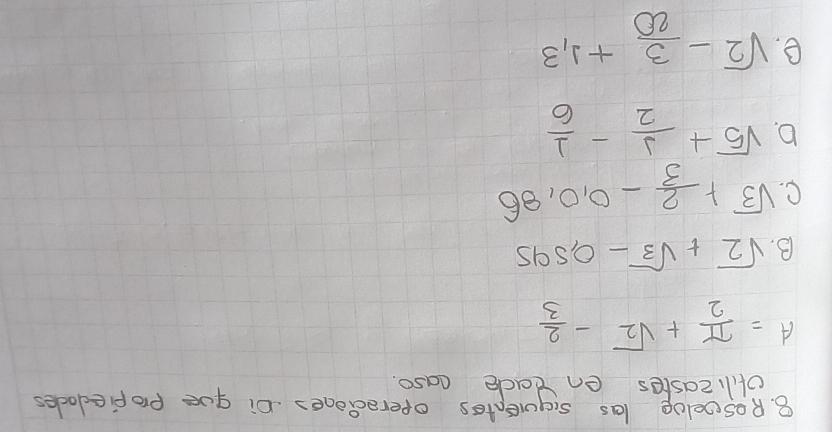 8. Resuelve las siguientes operaciones. Di que propiedades
utilizastes en cada caso.
A = π/2 + √2 - 2/3
B. √2 + √3 - 0,595
C. √3 + 2/3 - 0,0,86
D. √5 + 1/2 - 1/6
e. √2 - 3/20 + 1,3